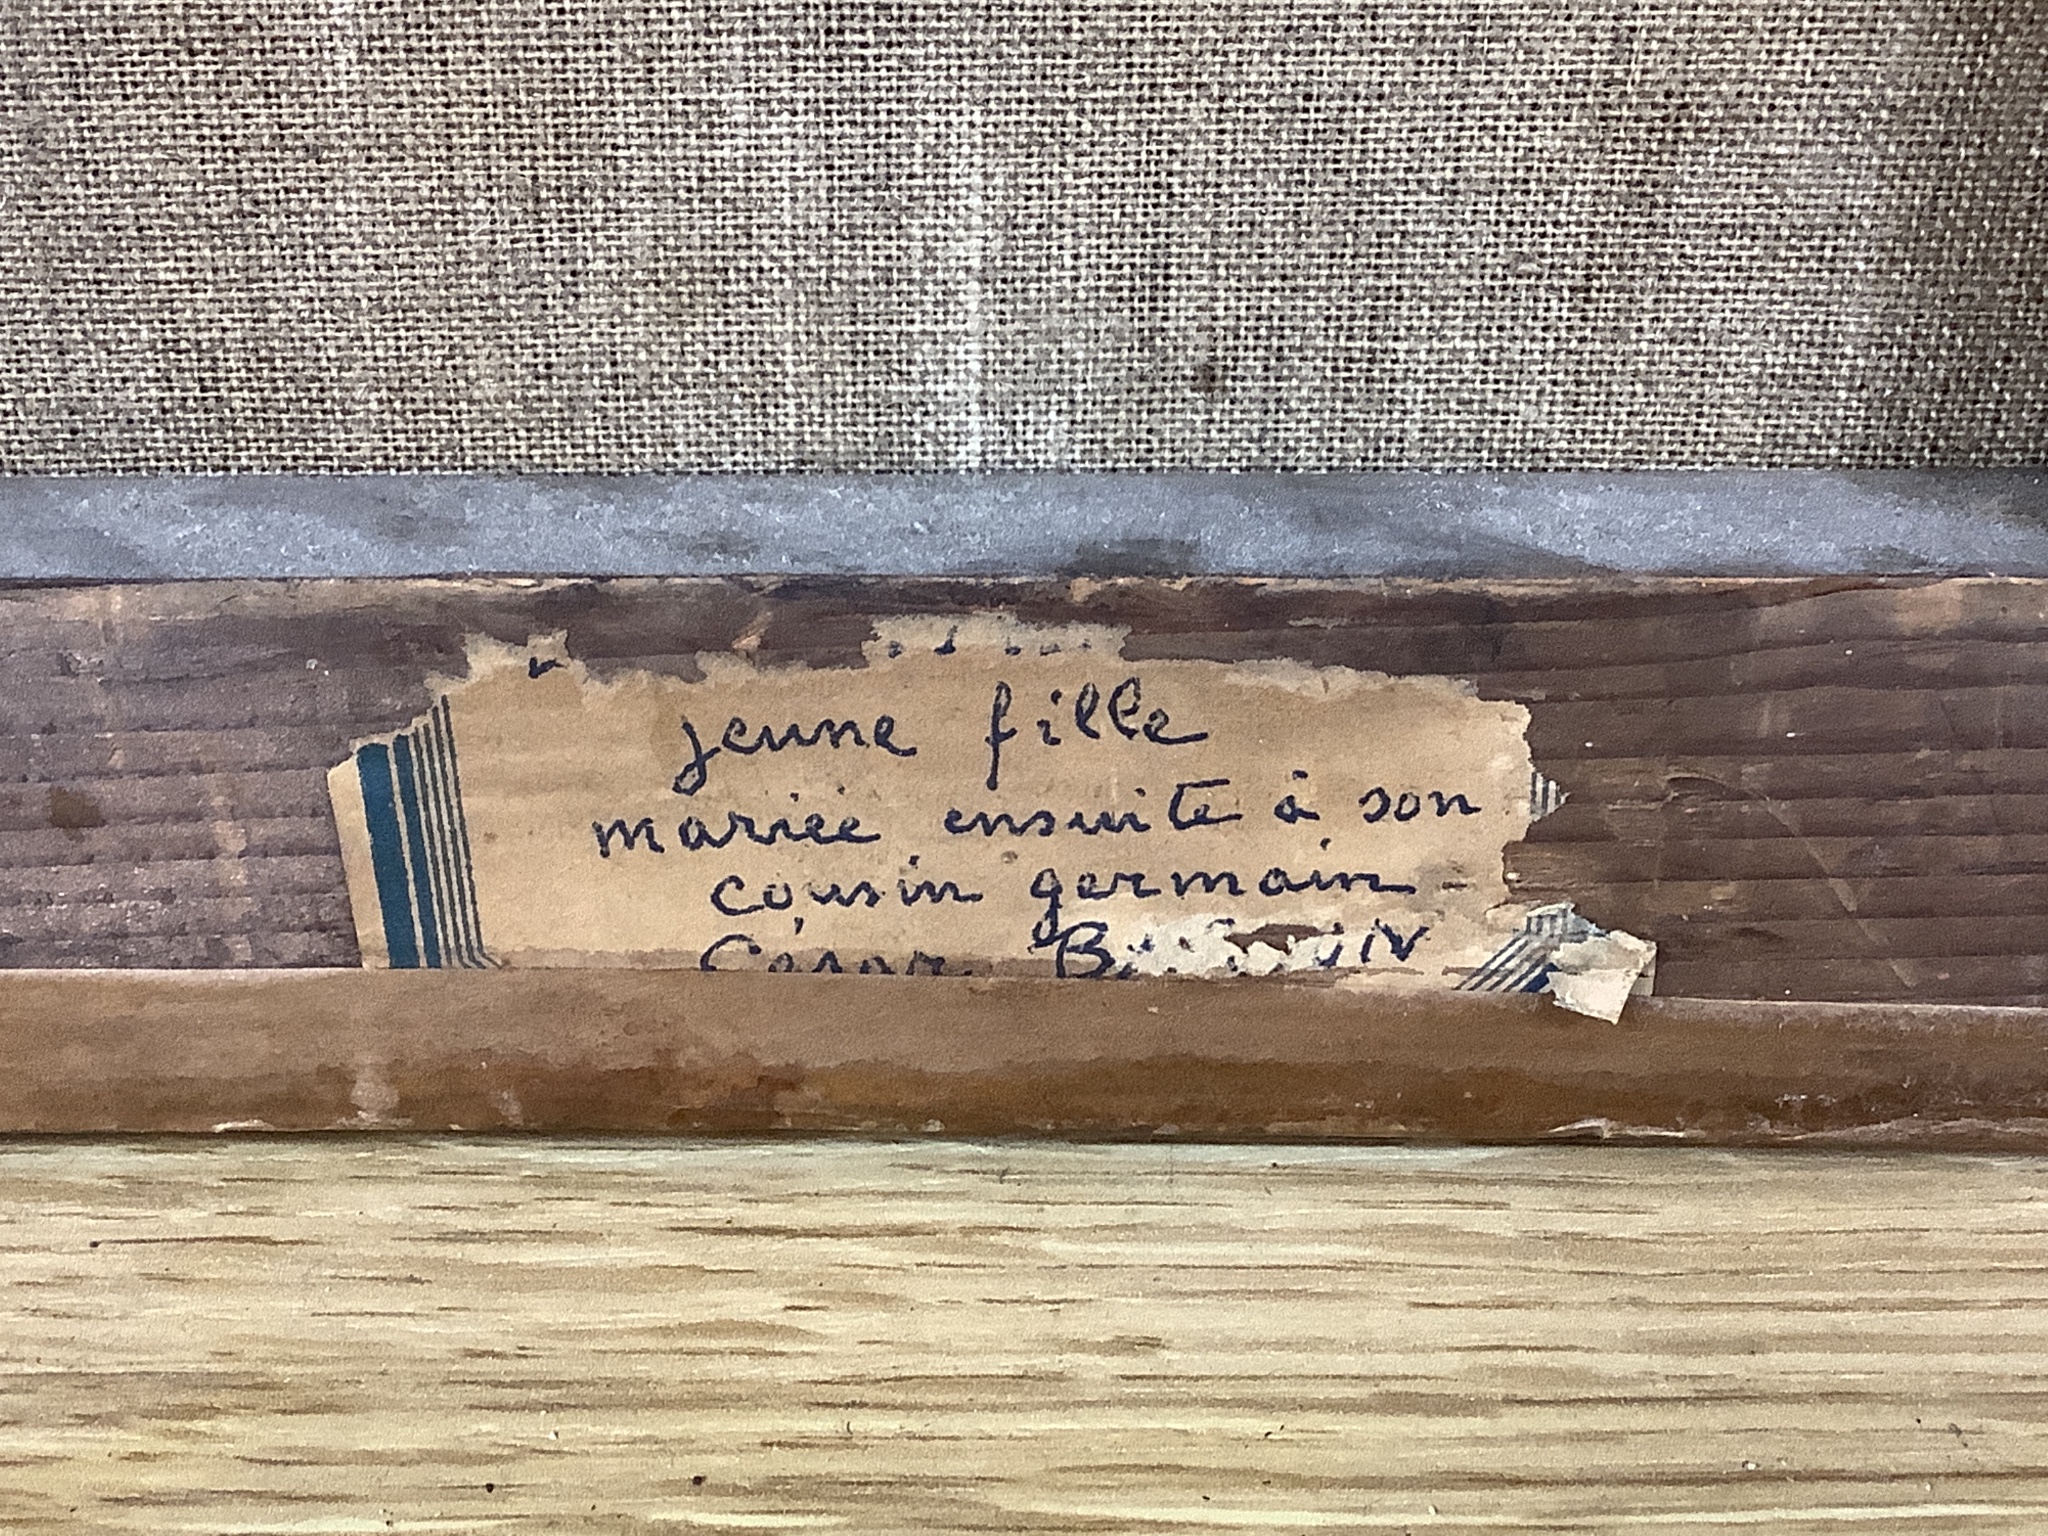 jeune fille
mariée ensuite à son
cousin germain
César